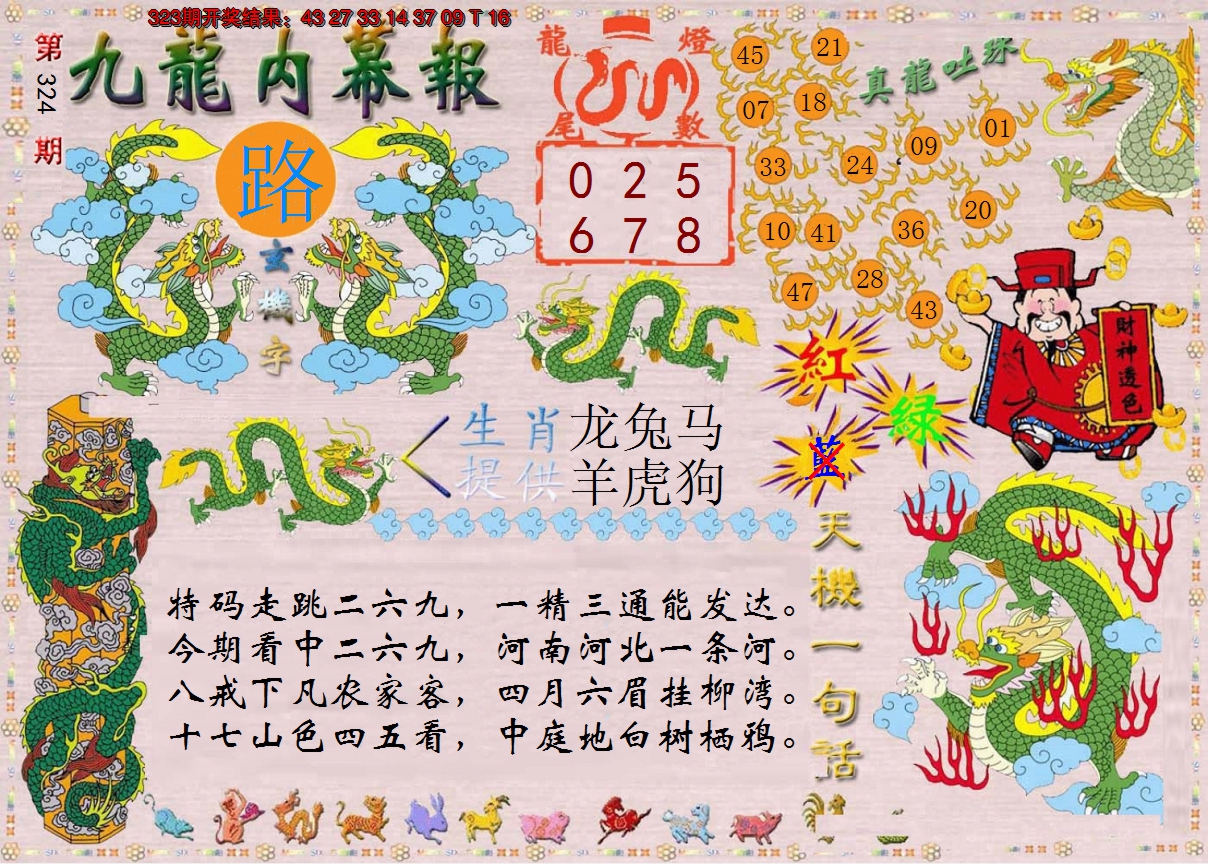 323期开奖结果：43 27 33 14 37 09 T 16
第
324
期
九龍内幕報
路
玄
機
字
龍
燈
尾
數
0 2 5
6 7 8
真龍吐珠
45
21
07
18
33
24
09
01
10
41
36
20
47
28
43
紅
緑
藍
財神透色
生肖
提供
龙兔马
羊虎狗
特码走跳二六九，一精三通能发达。
今期看中二六九，河南河北一条河。
八戒下凡农家客，四月六眉挂柳湾。
十七山色四五看，中庭地白树栖鸦。
天機一句話